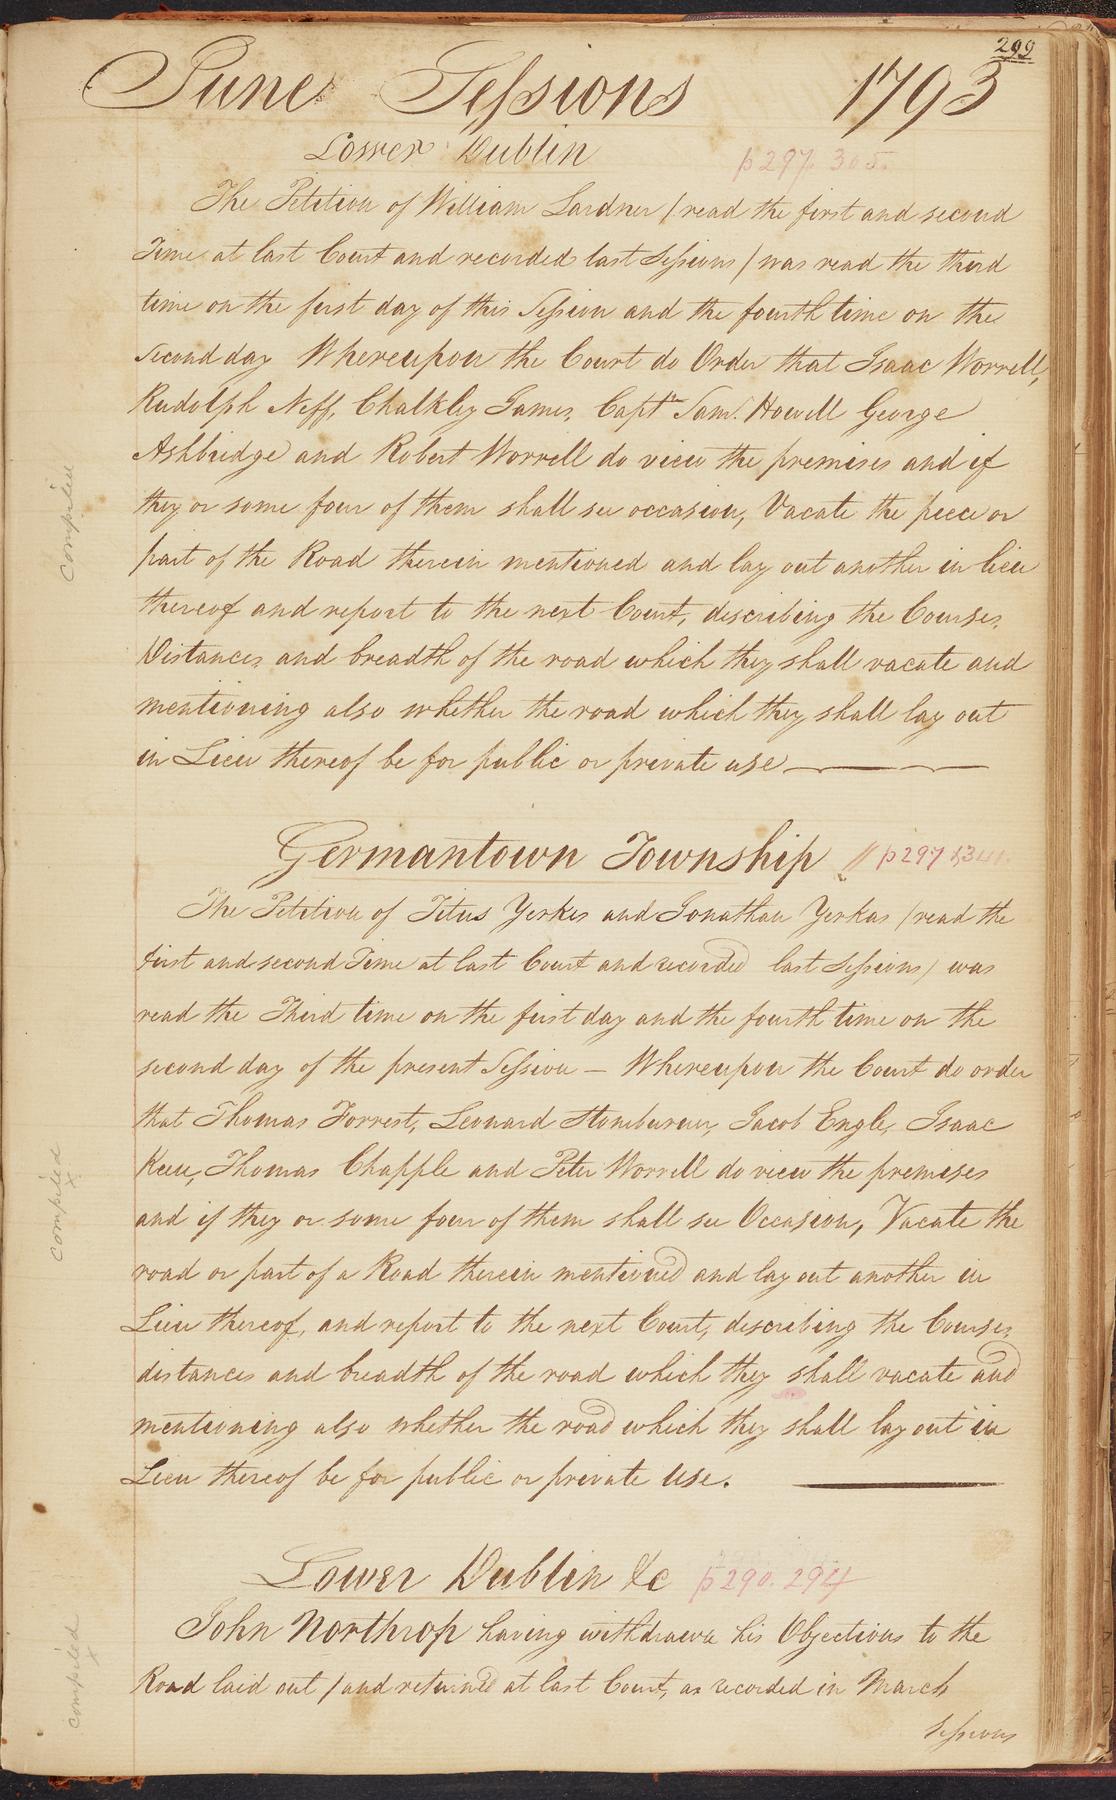 299
June Sessions 1793
Lower Dublin p 297. 305.
The Petition of William Lardner / read the first and second
Time at last Court and recorded last Sessions / was read the third
time on the first day of this Session and the fourth time on the
second day Whereupon the Court do Order that Isaac Worrell,
Rudolph Neff, Chalkley James, Capt.n Sam.l Howell George
Ashbridge and Robert Worrell do view the premises and if
they or some four of them shall see occasion, Vacate the peece or
part of the Road therein mentioned and lay out another in lieu
thereof and report to the next Court, describing the Courses,
Distances, and breadth of the road which they shall vacate and
mentioning also whether the road which they shall lay out
in Lieu thereof be for public or private use
compiled
Germantown Township // p 297
The Petition of Titus Yerkes and Jonathan Yerkas / read the
first and second Time at last Court and recorded last Sessions / was
read the Third time on the first day and the fourth time on the
second day of the present Session — Whereupon the Court do order
that Thomas Forrest, Leonard Stoneburner, Jacob Engle, Isaac
Thomas Chapple and Peter Worrell do view the premises
and if they or some four of them shall see Occasion, Vacate the
road or part of a Road therein mentioned and lay out another in
Lieu thereof, and report to the next Court, describing the Courses
distances and breadth of the road which they shall vacate and
mentioning also whether the road which they shall lay out in
Lieu thereof be for public or private use.
compiled
Lower Dublin &c p 290. 294
John Northrop having withdrawn his Objections to the
Road laid out / and returned at last Court, as recorded in March
Sessions
compiled